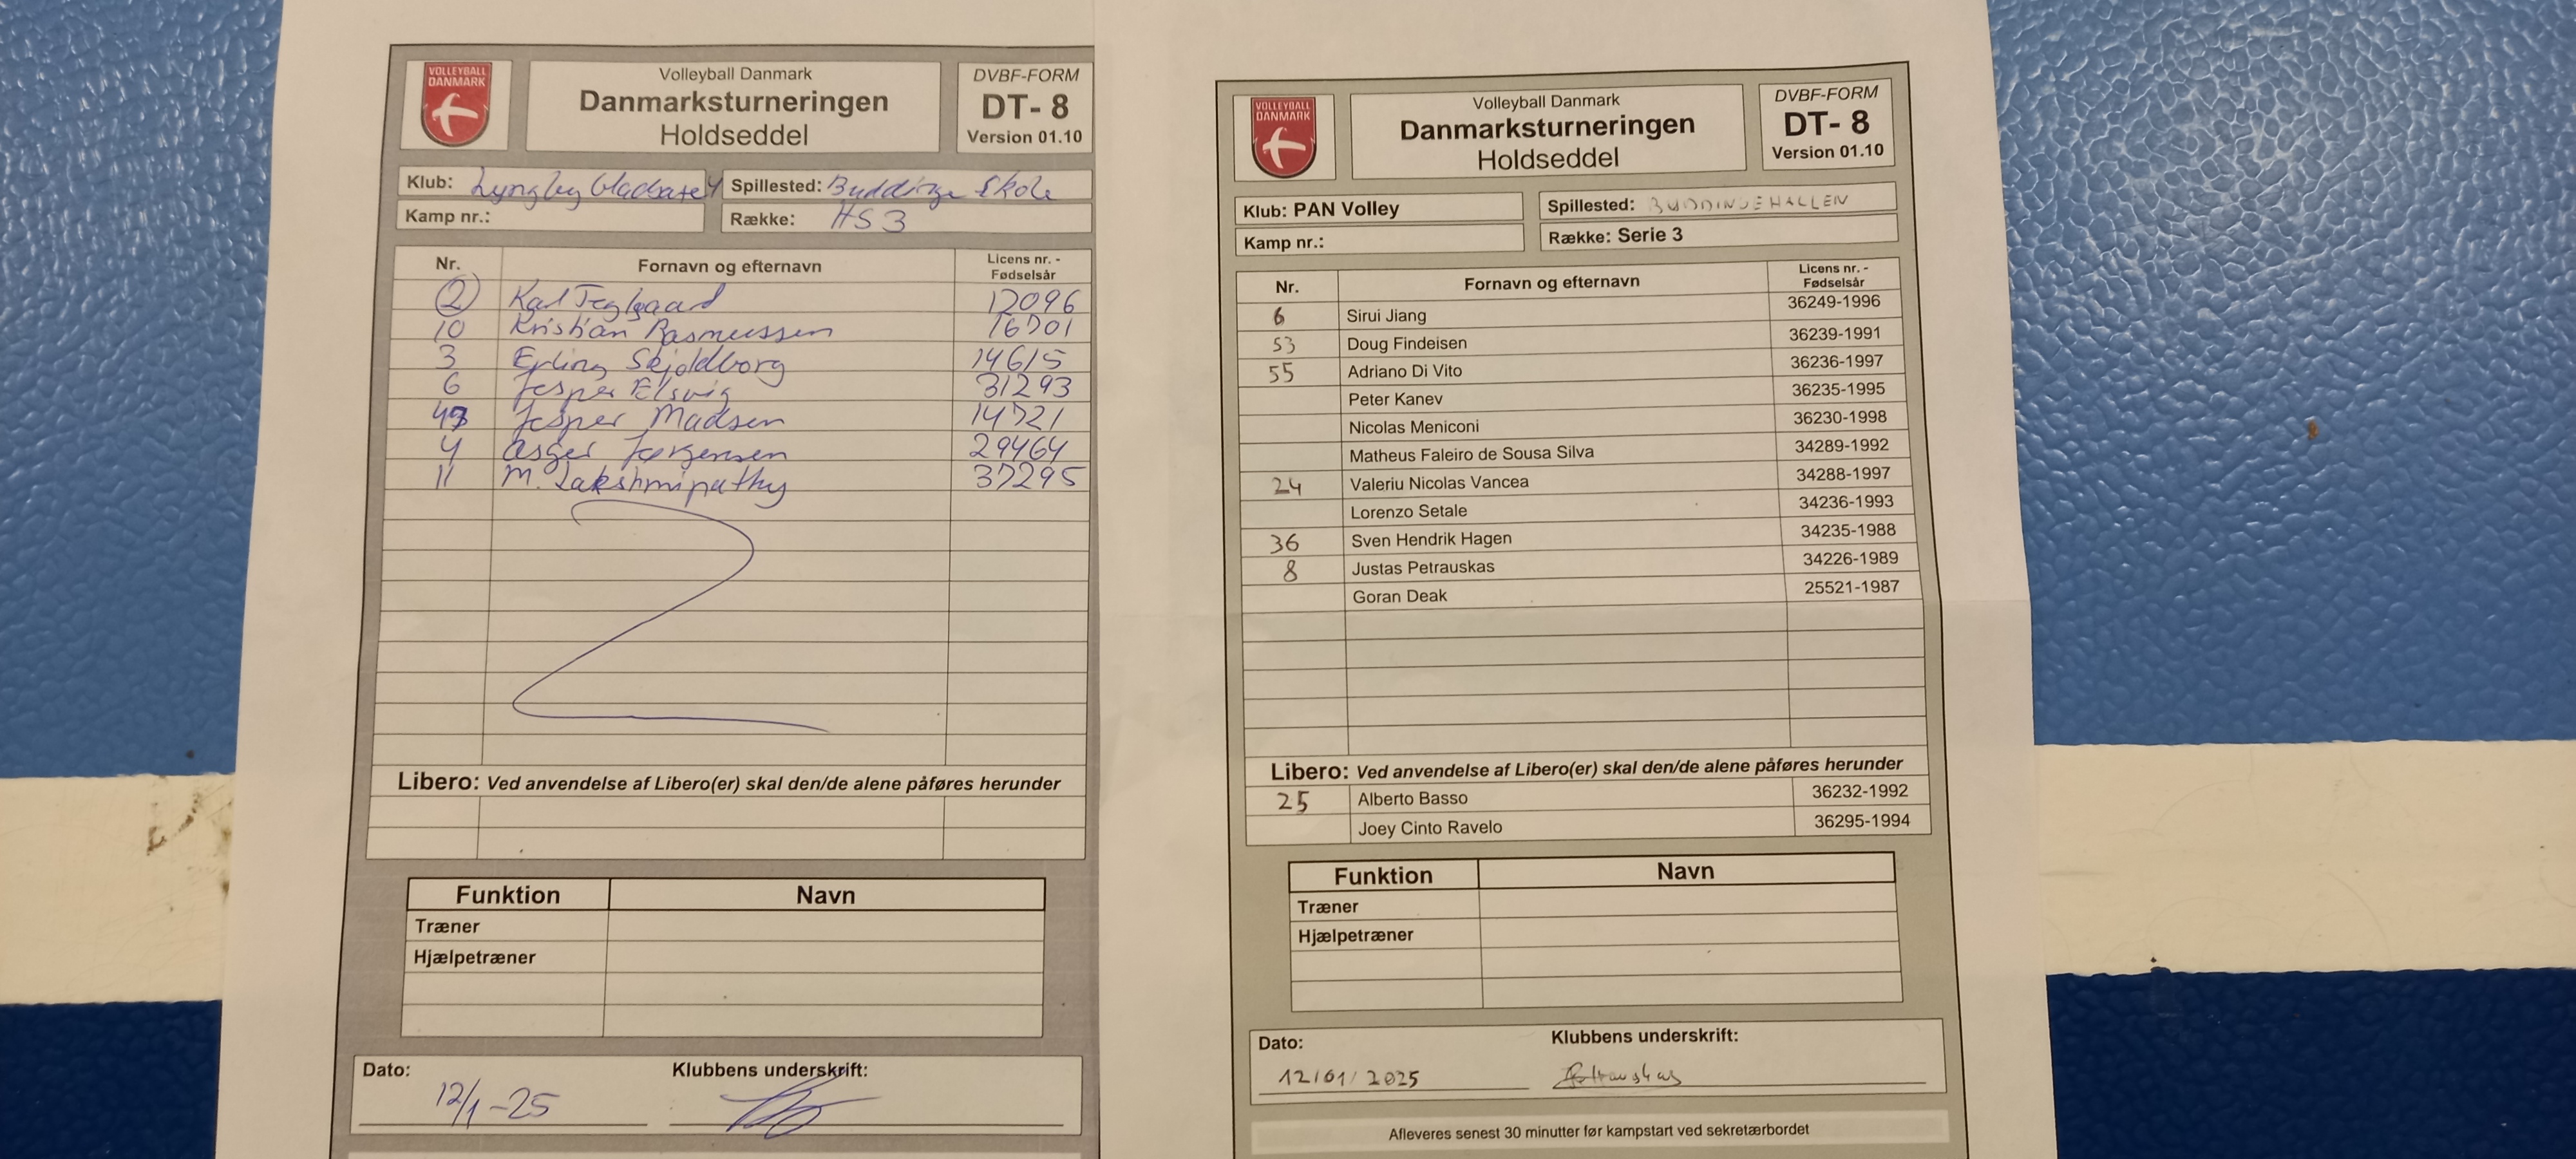 VOLLEYBALL
DANMARK
Volleyball Danmark
Danmarksturneringen
Holdseddel
DVBF-FORM
DT- 8
Version 01.10
Klub: Lyngby Gladsaxe
Spillested: Buddinge Skole
Kamp nr.:
Række: HS3
Nr. Fornavn og efternavn Licens nr. -
Fødselsår
2 Karl Teglgaard 12096
10 Kristian Rasmussen 16701
3 Erling Skjoldborg 14615
6 Jesper Elsvig 31293
Jesper Madsen 14721
4 Asger Jørgensen 29464
11 M. Lakshmipathy 37295
Libero: Ved anvendelse af Libero(er) skal den/de alene påføres herunder
Funktion Navn
Træner
Hjælpetræner
Dato: Klubbens underskrift:
12/1-25
VOLLEYBALL
DANMARK
Volleyball Danmark
Danmarksturneringen
Holdseddel
DVBF-FORM
DT- 8
Version 01.10
Klub: PAN Volley
Spillested: BUDDINGEHALLEN
Kamp nr.:
Række: Serie 3
Nr. Fornavn og efternavn Licens nr. -
Fødselsår
6 Sirui Jiang 36249-1996
53 Doug Findeisen 36239-1991
55 Adriano Di Vito 36236-1997
Peter Kanev 36235-1995
Nicolas Meniconi 36230-1998
Matheus Faleiro de Sousa Silva 34289-1992
24 Valeriu Nicolas Vancea 34288-1997
Lorenzo Setale 34236-1993
36 Sven Hendrik Hagen 34235-1988
8 Justas Petrauskas 34226-1989
Goran Deak 25521-1987
Libero: Ved anvendelse af Libero(er) skal den/de alene påføres herunder
25 Alberto Basso 36232-1992
Joey Cinto Ravelo 36295-1994
Funktion Navn
Træner
Hjælpetræner
Dato: Klubbens underskrift:
12/01/2025
Afleveres senest 30 minutter før kampstart ved sekretærbordet